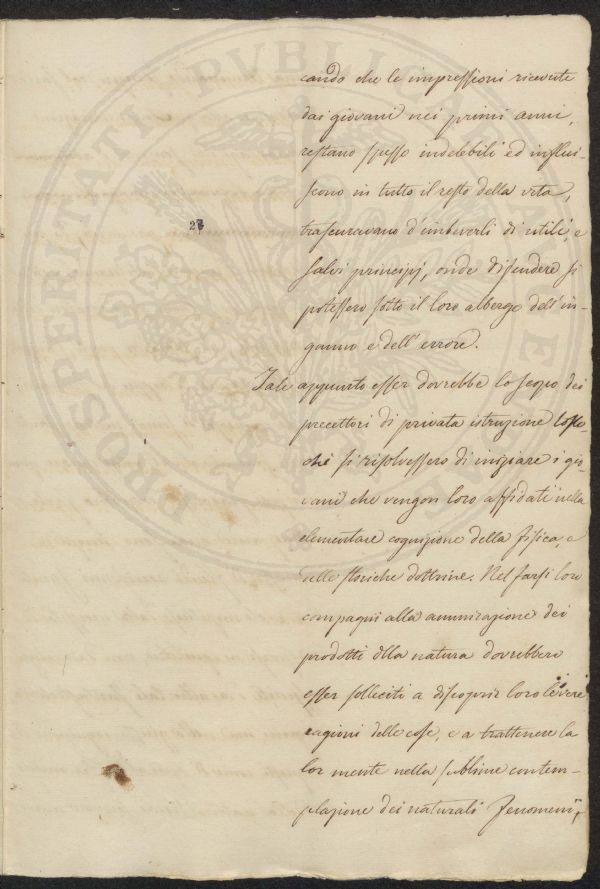 cando che le impressioni ricevute
dai giovani nei primi anni,
restano spesso indelebili ed influi-
scono in tutto il resto della vita,
27
trascuravano d'imbeverli di utili, e
salvi principj, onde difendere si
potessero sotto il loro albergo dell'in-
ganno e dell'errore.
Tale appunto esser dovrebbe lo scopo dei
precettori di privata istruzione
che si risolvessero di iniziare i gio-
vani che vengon loro affidati nella
elementare cognizione della fisica, e
delle storiche dottrine. Nel farsi loro
compagni alla ammirazione dei
prodotti della natura dovrebbero
esser solleciti a discoprir loro le vere
cagioni delle cose, e a trattenere la
lor mente nella sublime contem-
plazione dei naturali fenomeni,
PROSPERITATI PVBLICAE